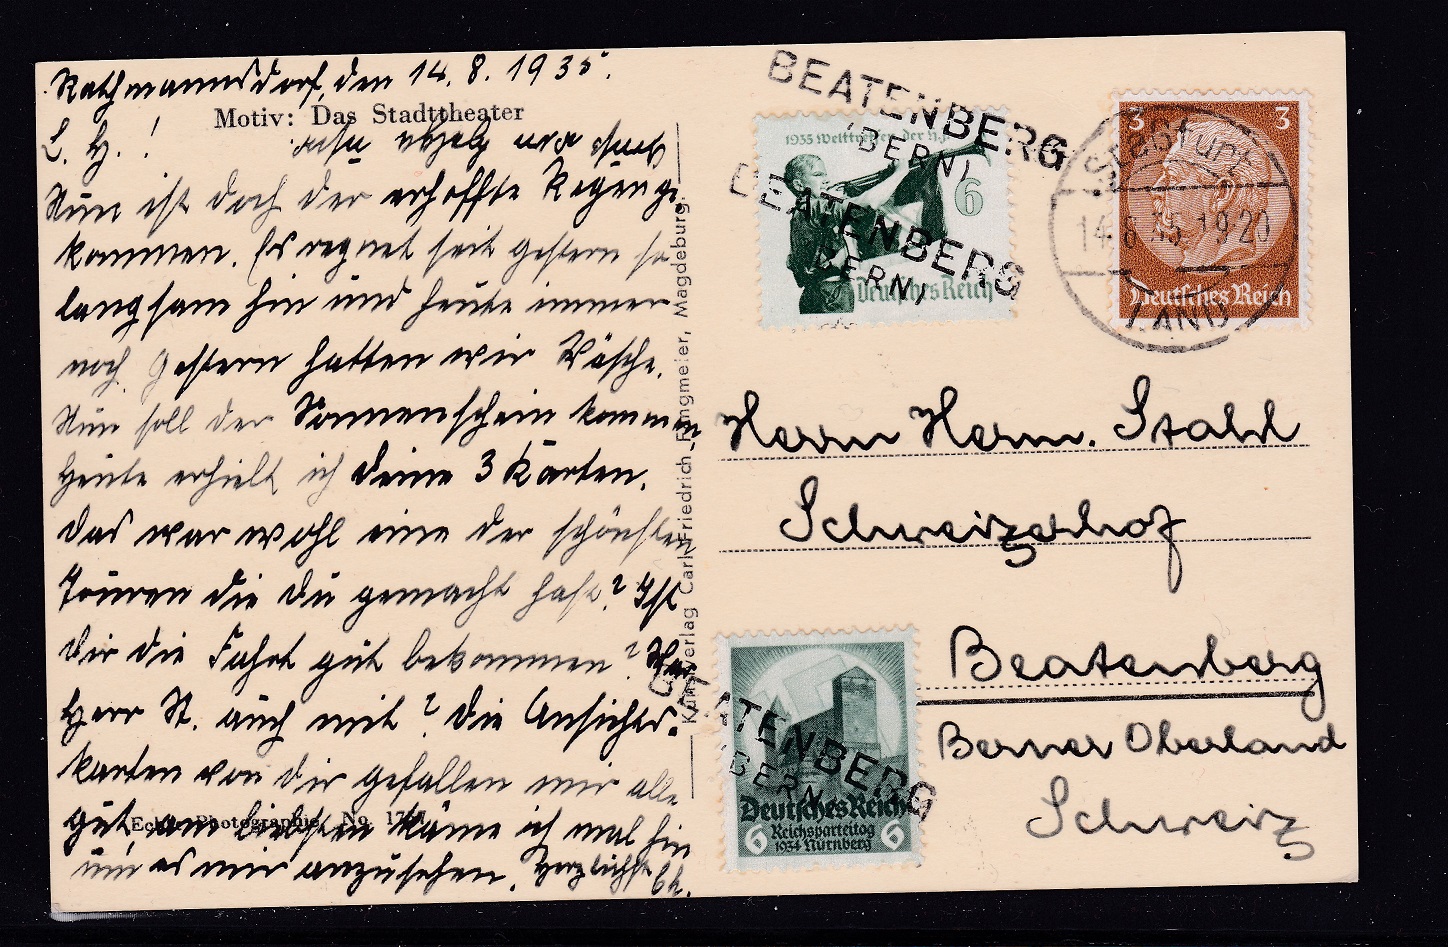 Rathmannsdorf, den 14.8.1935.
Motiv: Das Stadttheater
L. H.!
Nun ist doch der erhoffte Regen ge-
kommen. Es regnet seit gestern so
langsam hin und heute immer
noch. Gestern hatten wir Wäsche.
Nun soll der Sonnenschein kommen
Heute erhielt ich Deine 3 Karten.
Das war wohl eine der schönsten
Touren die Du gemacht hast? Ist
Dir die Fahrt gut bekommen? War
Herr St. auch mit? Die Ansichts-
karten von Dir gefallen mir alle
gut, am liebsten käme ich mal hin
um es mir anzusehen. Herzlichst
Echte Photographie No.
Kunstverlag Carl Friedrich Fangmeier, Magdeburg.
BEATENBERG
(BERN)
BEATENBERG
(BERN)
1935 Welttreffen der H.J.
6
Deutsches Reich
3 3
Deutsches Reich
Staßfurt
14.8.35.19-20
LAND
Herrn Herm. Stahl
Schweizerhof
Beatenberg
Berner Oberland
Schweiz
BEATENBERG
(BERN)
Deutsches Reich
6 Reichsparteitag 6
1934 Nürnberg